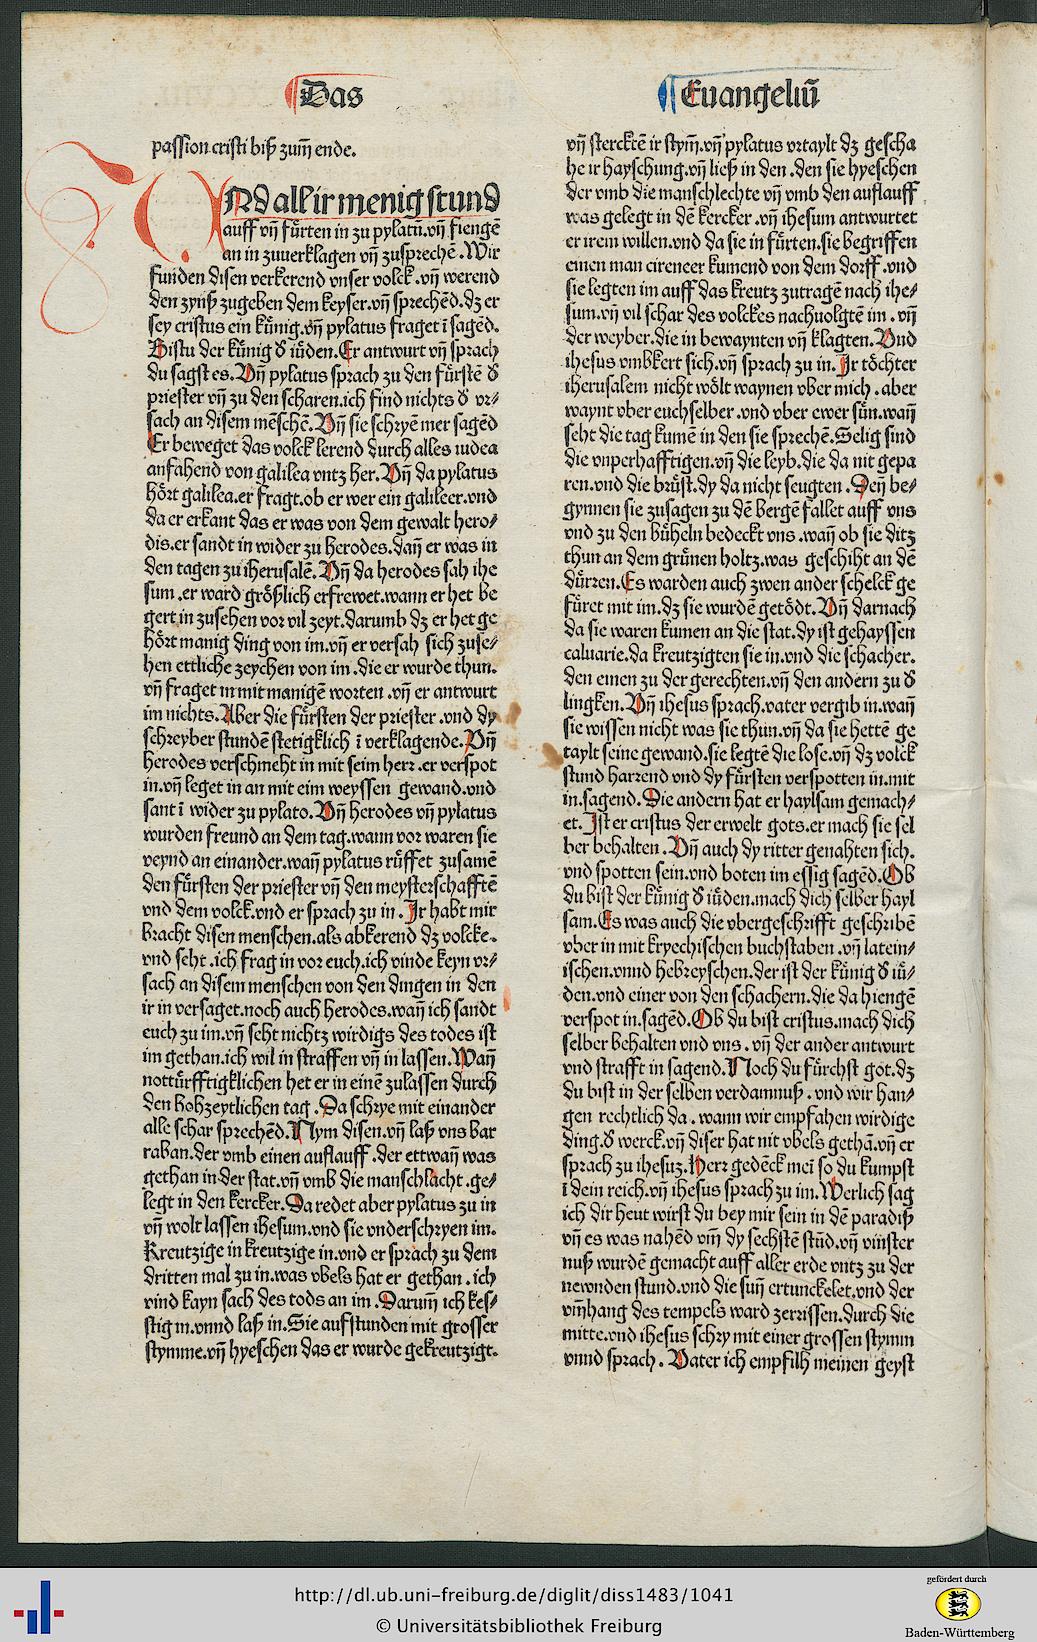 Das
Euangeliū
passion cristi biß zum̄ ende.
VNd all ir menig stund
auff vn̄ fu̍rten in zu pylatū.vn̄ fiengē
an in zuuerklagen vn̄ zusprechē.Wir
funden disen verkerend vnser volck.vn̄ werend
den zynß zugeben dem keyser.vn̄ sprechēd.dz er
sey cristus ein ku̍nig.vn̄ pylatus fraget ī sagēd.
Bistu der ku̍nig d̕ iu̍den.Er antwurt vn̄ sprach
du sagst es.Vn̄ pylatus sprach zu den fu̍rstē d̕
priester vn̄ zu den scharen.ich find nichts d̕ vr⸗
sach an disem mēschē.Vn̄ sie schryē mer sagēd
Er beweget das volck lerend durch alles iudea
anfahend von galilea vntz her.Vn̄ da pylatus
ho̍rt galilea.er fragt.ob er wer ein galileer.vnd
da er erkant das er was von dem gewalt hero⸗
dis.er sandt in wider zu herodes.dan̄ er was in
den tagen zu iherusalē.Vn̄ da herodes sah ihe
sum.er ward gro̍ßlich erfrewet.wann er het be
gert in zusehen vor vil zeyt.darumb dz er het ge
ho̍rt manig ding von im.vn̄ er versah sich zuse⸗
hen ettliche zeychen von im.die er wurde thun.
vn̄ fraget in mit manigē worten.vn̄ er antwurt
im nichts.Aber die fu̍rsten der priester.vnd dy
schreyber stundē stetigklich ī verklagende.Vn̄
herodes verschmeht in mit seim herz.er verspot
in.vn̄ leget in an mit eim weyssen gewand.vnd
sant ī wider zu pylato.Vn̄ herodes vn̄ pylatus
wurden freund an dem tag.wann vor waren sie
veynd an einander.wan̄ pylatus ru̍ffet zusamē
den fu̍rsten der priester vn̄ den meysterschafftē
vnd dem volck.vnd er sprach zu in.Ir habt mir
bracht disen menschen.als abkerend dz volcke.
vnd seht.ich frag in vor euch.ich vinde keyn vr⸗
sach an disem menschen von den dingen in den
ir in versaget.noch auch herodes.wan̄ ich sandt
euch zu im.vn̄ seht nichtz wirdigs des todes ist
im gethan.ich wil in straffen vn̄ in lassen.Wan̄
nottu̍rfftigklichen het er in einē zulassen durch
den hohzeytlichen tag.Da schrye mit einander
alle schar sprechēd.Nym disen.vn̄ laß vns bar
raban.der vmb einen auflauff.der ettwan̄ was
gethan in der stat.vn̄ vmb die manschlacht.ge⸗
legt in den kercker.Da redet aber pylatus zu in
vn̄ wolt lassen ihesum.vnd sie vnderschryen im.
Kreutzige in kreutzige in.vnd er sprach zu dem
dritten mal zu in.was vbels hat er gethan.ich
vind kayn sach des tods an im.Darum̄ ich kes⸗
stig in.vnnd laß in.Sie aufstunden mit grosser
stymme.vn̄ hyeschen das er wurde gekreutzigt.
vn̄ stercktē ir stym̄.vn̄ pylatus vrtaylt dz gescha
he ir hayschung.vn̄ ließ in den.den sie hyeschen
der vmb die manschlechte vn̄ vmb den auflauff
was gelegt in dē kercker.vn̄ ihesum antwurtet
er irem willen.vnd da sie in fu̍rten.sie begriffen
einen man cireneer kumend von dem dorff.vnd
sie legten im auff das kreutz zutragē nach ihe⸗
sum.vn̄ vil schar des volckes nachuolgtē im.vn̄
der weyber.die in bewaynten vn̄ klagten.Vnd
ihesus vmbkert sich.vn̄ sprach zu in.Ir to̍chter
iherusalem nicht wo̍lt waynen vber mich.aber
waynt vber euch selber.vnd vber ewer su̍n.wan̄
seht die tag kumē in den sie sprechē.Selig sind
die vnperhafftigen.vn̄ die leyb.die da nit gepa
ren.vnd die bru̍st.dy da nicht seugten.Den̄ be⸗
gynnen sie zusagen zu dē bergē fallet auff vns
vnd zu den bu̍heln bedeckt vns.wan̄ ob sie ditz
thun an dem gru̍nen holtz.was geschiht an dē
du̍rren.Es warden auch zwen ander schelck ge
fu̍ret mit im.dz sie wurdē geto̍dt.Vn̄ darnach
da sie waren kumen an die stat.dy ist gehayssen
caluarie.da kreutzigten sie in.vnd die schacher.
den einen zu der gerechten.vn̄ den andern zu d̕
lingken.Vn̄ ihesus sprach.vater vergib in.wan̄
sie wissen nicht was sie thun.vn̄ da sie hettē ge
taylt seine gewand.sie legtē die lose.vn̄ dz volck
stund harrend vnd dy fu̍rsten verspotten in.mit
in.sagend.Die andern hat er haylsam gemach⸗
et.Ist er cristus der erwelt gots.er mach sie sel
ber behalten.Vn̄ auch dy ritter genahten sich.
vnd spotten sein.vnd boten im essig sagēd.Ob
du bist der ku̍nig d̕ iu̍den.mach dich selber hayl
sam.Es was auch die vbergeschrifft geschribē
vber in mit kryechischen buchstaben.vn̄ latein⸗
ischen.vnnd hebreyschen.der ist der ku̍nig d̕ iu̍⸗
den.vnd einer von den schachern.die da hiengē
verspot in.sagēd.Ob du bist cristus.mach dich
selber behalten vnd vns.vn̄ der ander antwurt
vnd strafft in sagend.Noch du fu̍rchst got.dz
du bist in der selben verdamnuß.vnd wir han⸗
gen rechtlich da.wann wir empfahen wirdige
ding.d̕ werck.vn̄ diser hat nit vbels gethā.vn̄ er
sprach zu ihesuz.Herr gedēck mei so du kumpst
ī dein reich.vn̄ ihesus sprach zu im.Werlich sag
ich dir heut wirst du bey mir sein in dē paradiß
vn̄ es was nahēd vm̄ dy sechstē stūd.vn̄ vinster
nuß wurdē gemacht auff aller erde vntz zu der
newnden stund.vnd die sun̄ ertunckelet.vnd der
vm̄hang des tempels ward zerrissen.durch die
mitte.vnd ihesus schry mit einer grossen stymm
vnnd sprach.Vater ich empfilh meinen geyst
http://dl.ub.uni-freiburg.de/diglit/diss1483/1041
© Universitätsbibliothek Freiburg
gefördert durch
Baden-Württemberg